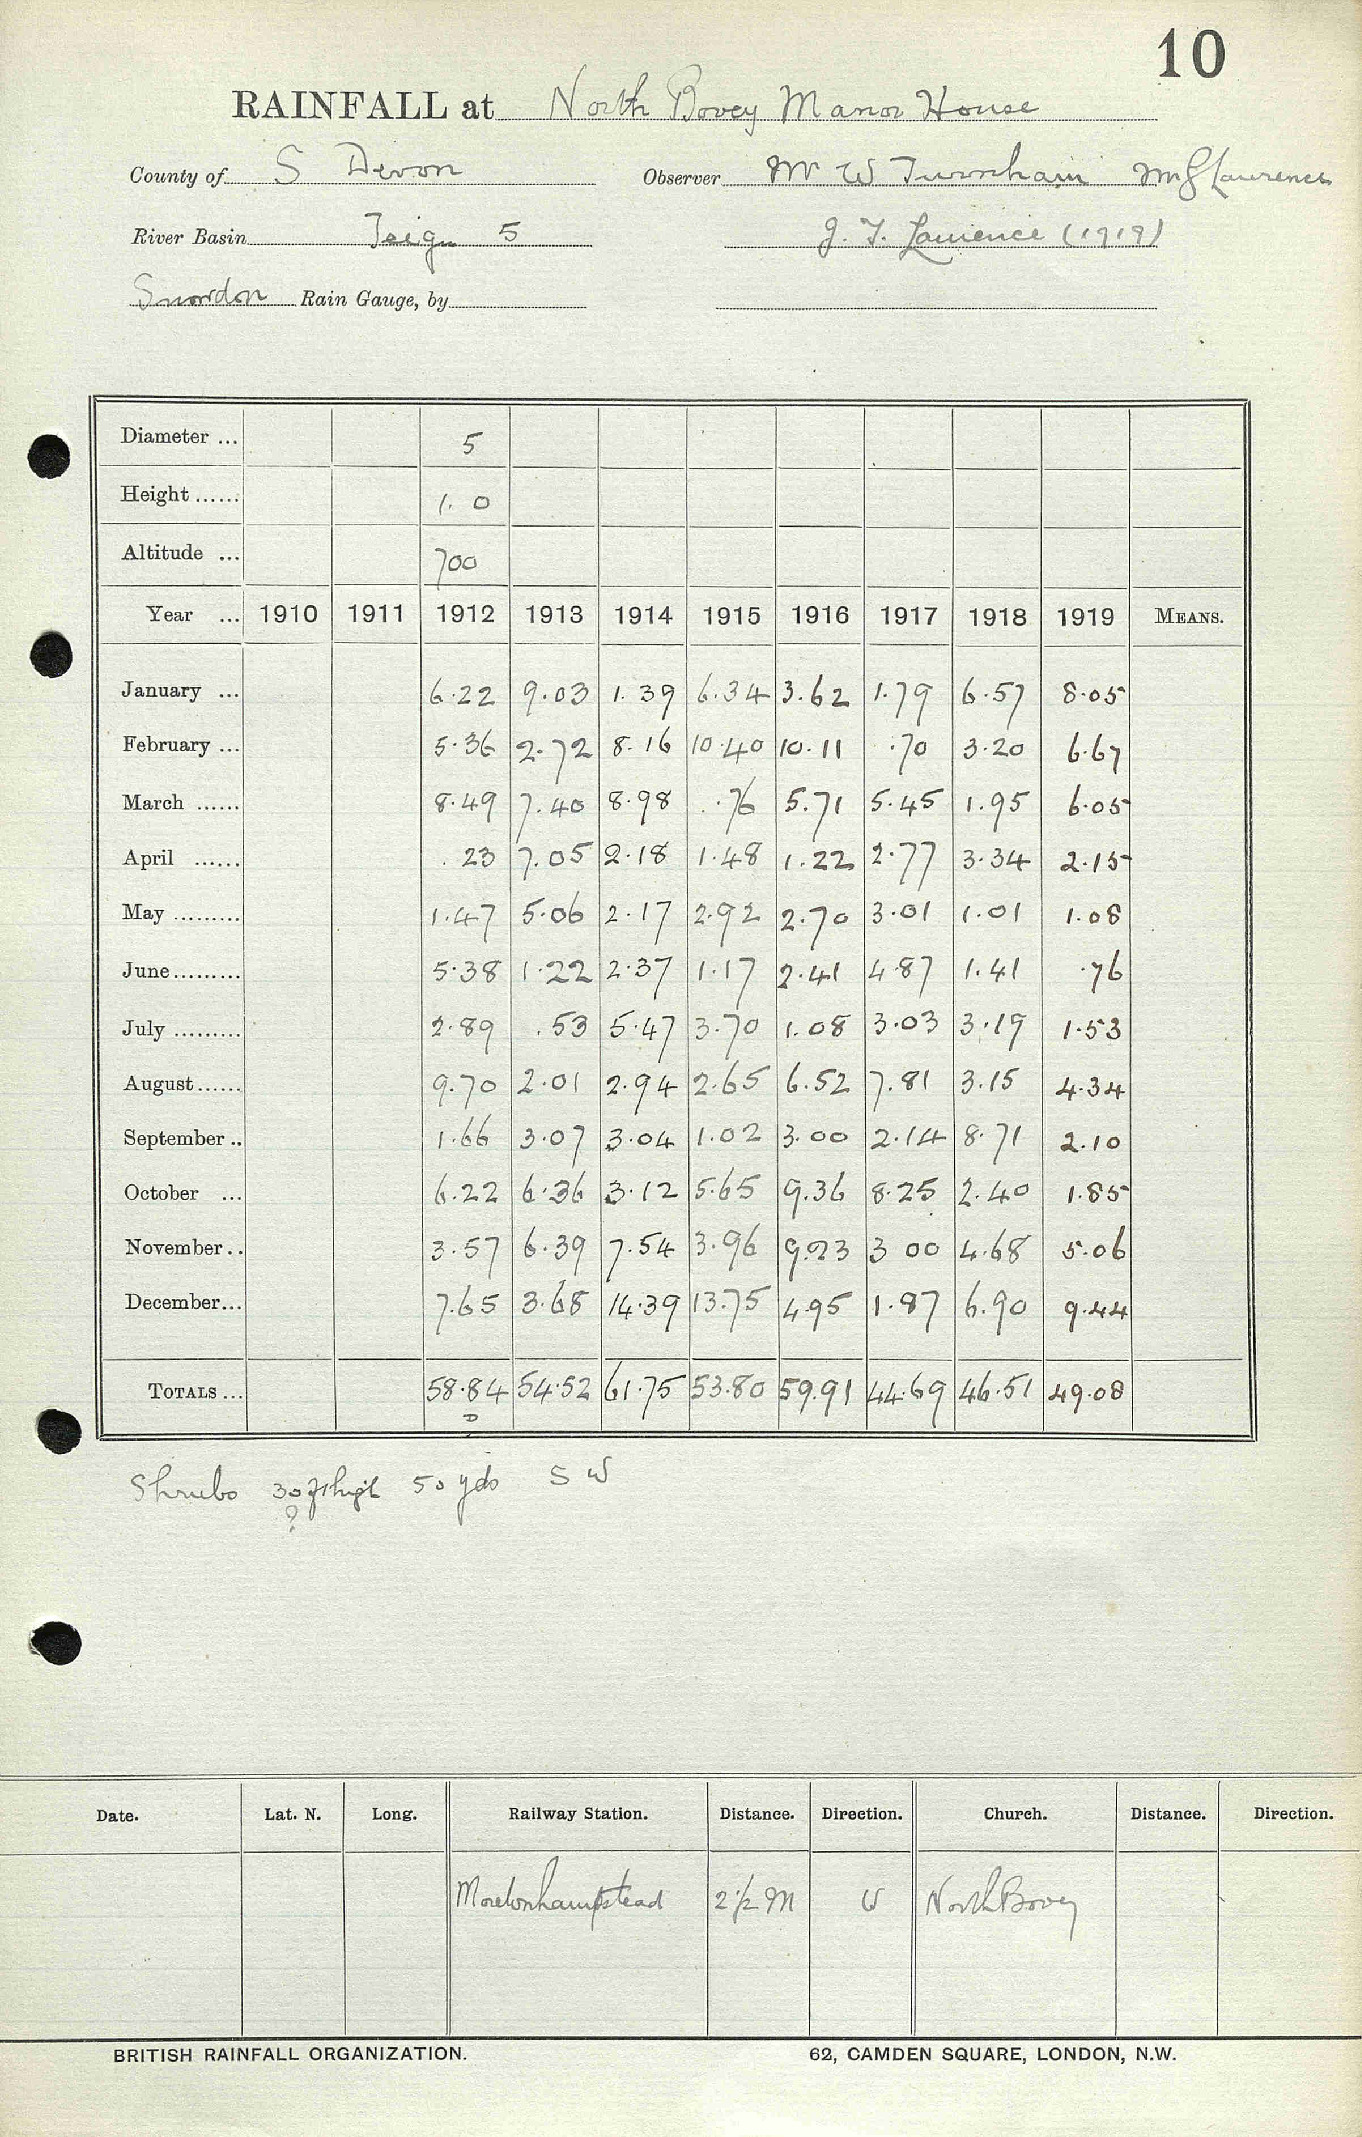 10
RAINFALL at North Bovey Manor House
County of S Devon Observer Mr W Turnham Mr G Lawrence
River Basin Teign 5 J. T. Lawrence (1919)
Snowdon Rain Gauge, by
Diameter ... 5
Height ...... 1. 0
Altitude ... 700
Year ... 1910 1911 1912 1913 1914 1915 1916 1917 1918 1919 MEANS.
January ... 6.22 9.03 1.39 6.34 3.62 1.79 6.57 8.05
February ... 5.36 2.72 8.16 10.40 10.11 .70 3.20 6.67
March ...... 8.49 7.40 8.98 .76 5.71 5.45 1.95 6.05
April ...... .23 7.05 2.18 1.48 1.22 2.77 3.34 2.15
May ......... 1.47 5.06 2.17 2.92 2.70 3.01 1.01 1.08
June......... 5.38 1.22 2.37 1.17 2.41 4.87 1.41 .76
July ......... 2.89 .53 5.47 3.70 1.08 3.03 3.19 1.53
August...... 9.70 2.01 2.94 2.65 6.52 7.81 3.15 4.34
September .. 1.66 3.07 3.04 1.02 3.00 2.14 8.71 2.10
October ... 6.22 6.36 3.12 5.65 9.36 8.25 2.40 1.85
November.. 3.57 6.39 7.54 3.96 9.23 3 00 4.68 5.06
December... 7.65 3.68 14.39 13.75 4.95 1.87 6.90 9.44
TOTALS ... 58.84 54.52 61.75 53.80 59.91 44.69 46.51 49.08
Shrubs 30 ft high 50 yds S W
?
Date. Lat. N. Long. Railway Station. Distance. Direction. Church. Distance. Direction.
Moretonhampstead 2½ M W North Bovey
BRITISH RAINFALL ORGANIZATION. 62, CAMDEN SQUARE, LONDON, N.W.